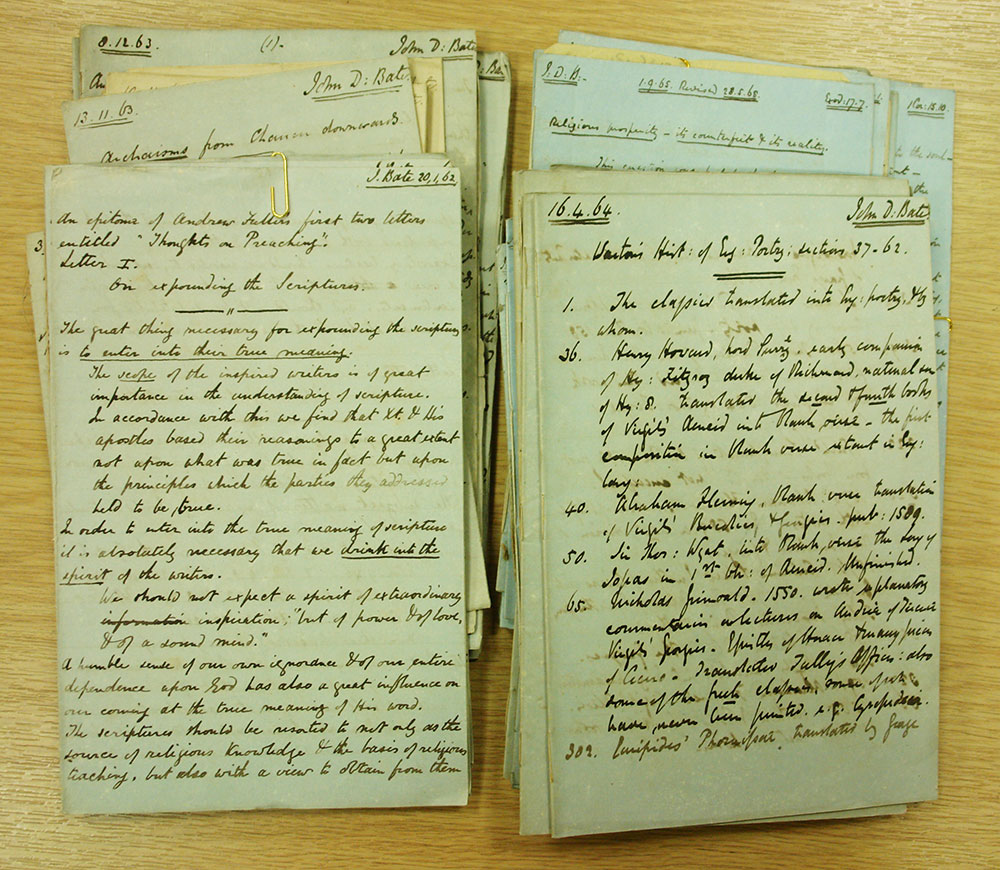 8.12.63. (1)- John D: Bate
13.11.63 John D: Bate.
Archaisms from Chaucer downwards.
J. Bate 20,1,62
An epitome of Andrew Fuller's first two letters
entitled "Thoughts on Preaching".
Letter I.
On expounding the Scriptures.
The great thing necessary for expounding the scriptures
is to enter into their true meaning.
The scope of the inspired writers is of great
importance in the understanding of scripture.
In accordance with this we find that Xt. & His
apostles based their reasonings to a great extent
not upon what was true in fact but upon
the principles which the parties they addressed
held to be true.
In order to enter into the true meaning of scripture
it is absolutely necessary that we drink into the
spirit of the writers.
We should not expect a spirit of extraordinary
information inspiration, "but of power & of love,
& of a sound mind."
A humble sense of our own ignorance & of our entire
dependence upon God has also a great influence on
our coming at the true meaning of His word.
The scriptures should be resorted to not only as the
source of religious knowledge & the basis of religious
teaching, but also with a view to obtain from them
J. D. B.- 1.9.65. Revised 28.5.68.
Religious prosperity - its counterfeit & its reality.
This
to the soul-
16.4.64. John D: Bate
Warton's Hist: of Eng: Poetry: sections 37-62.
1. The classics translated into Eng: poetry, & by
whom.
36. Henry Howard, Lord Surry, early companion
of Hy: Fitzroy duke of Richmond, natural son
of Hy: 8. Translated the second & fourth books
of Virgil's Aeneid into Blank verse - the first
composition in Blank verse extant in Eng:
lang:
40. Abraham Fleming, Blank verse translation
of Virgil's Bucolics & Georgics. pub: 1589.
50. Sir Thos: Wyat, into Blank verse the Song of
Iopas in 1st bk: of Aeneid. Unfinished.
65. Nicholas Grimoald. 1550. wrote explanatory
commentaries or lectures on
Virgil's Georgics. Epistles of Horace & many pieces
of Cicero. Translated Tully's Offices: also
some of the Greek classics, some of
have never been printed. e.g. Cyropaedia.
302. Euripides' translated by George